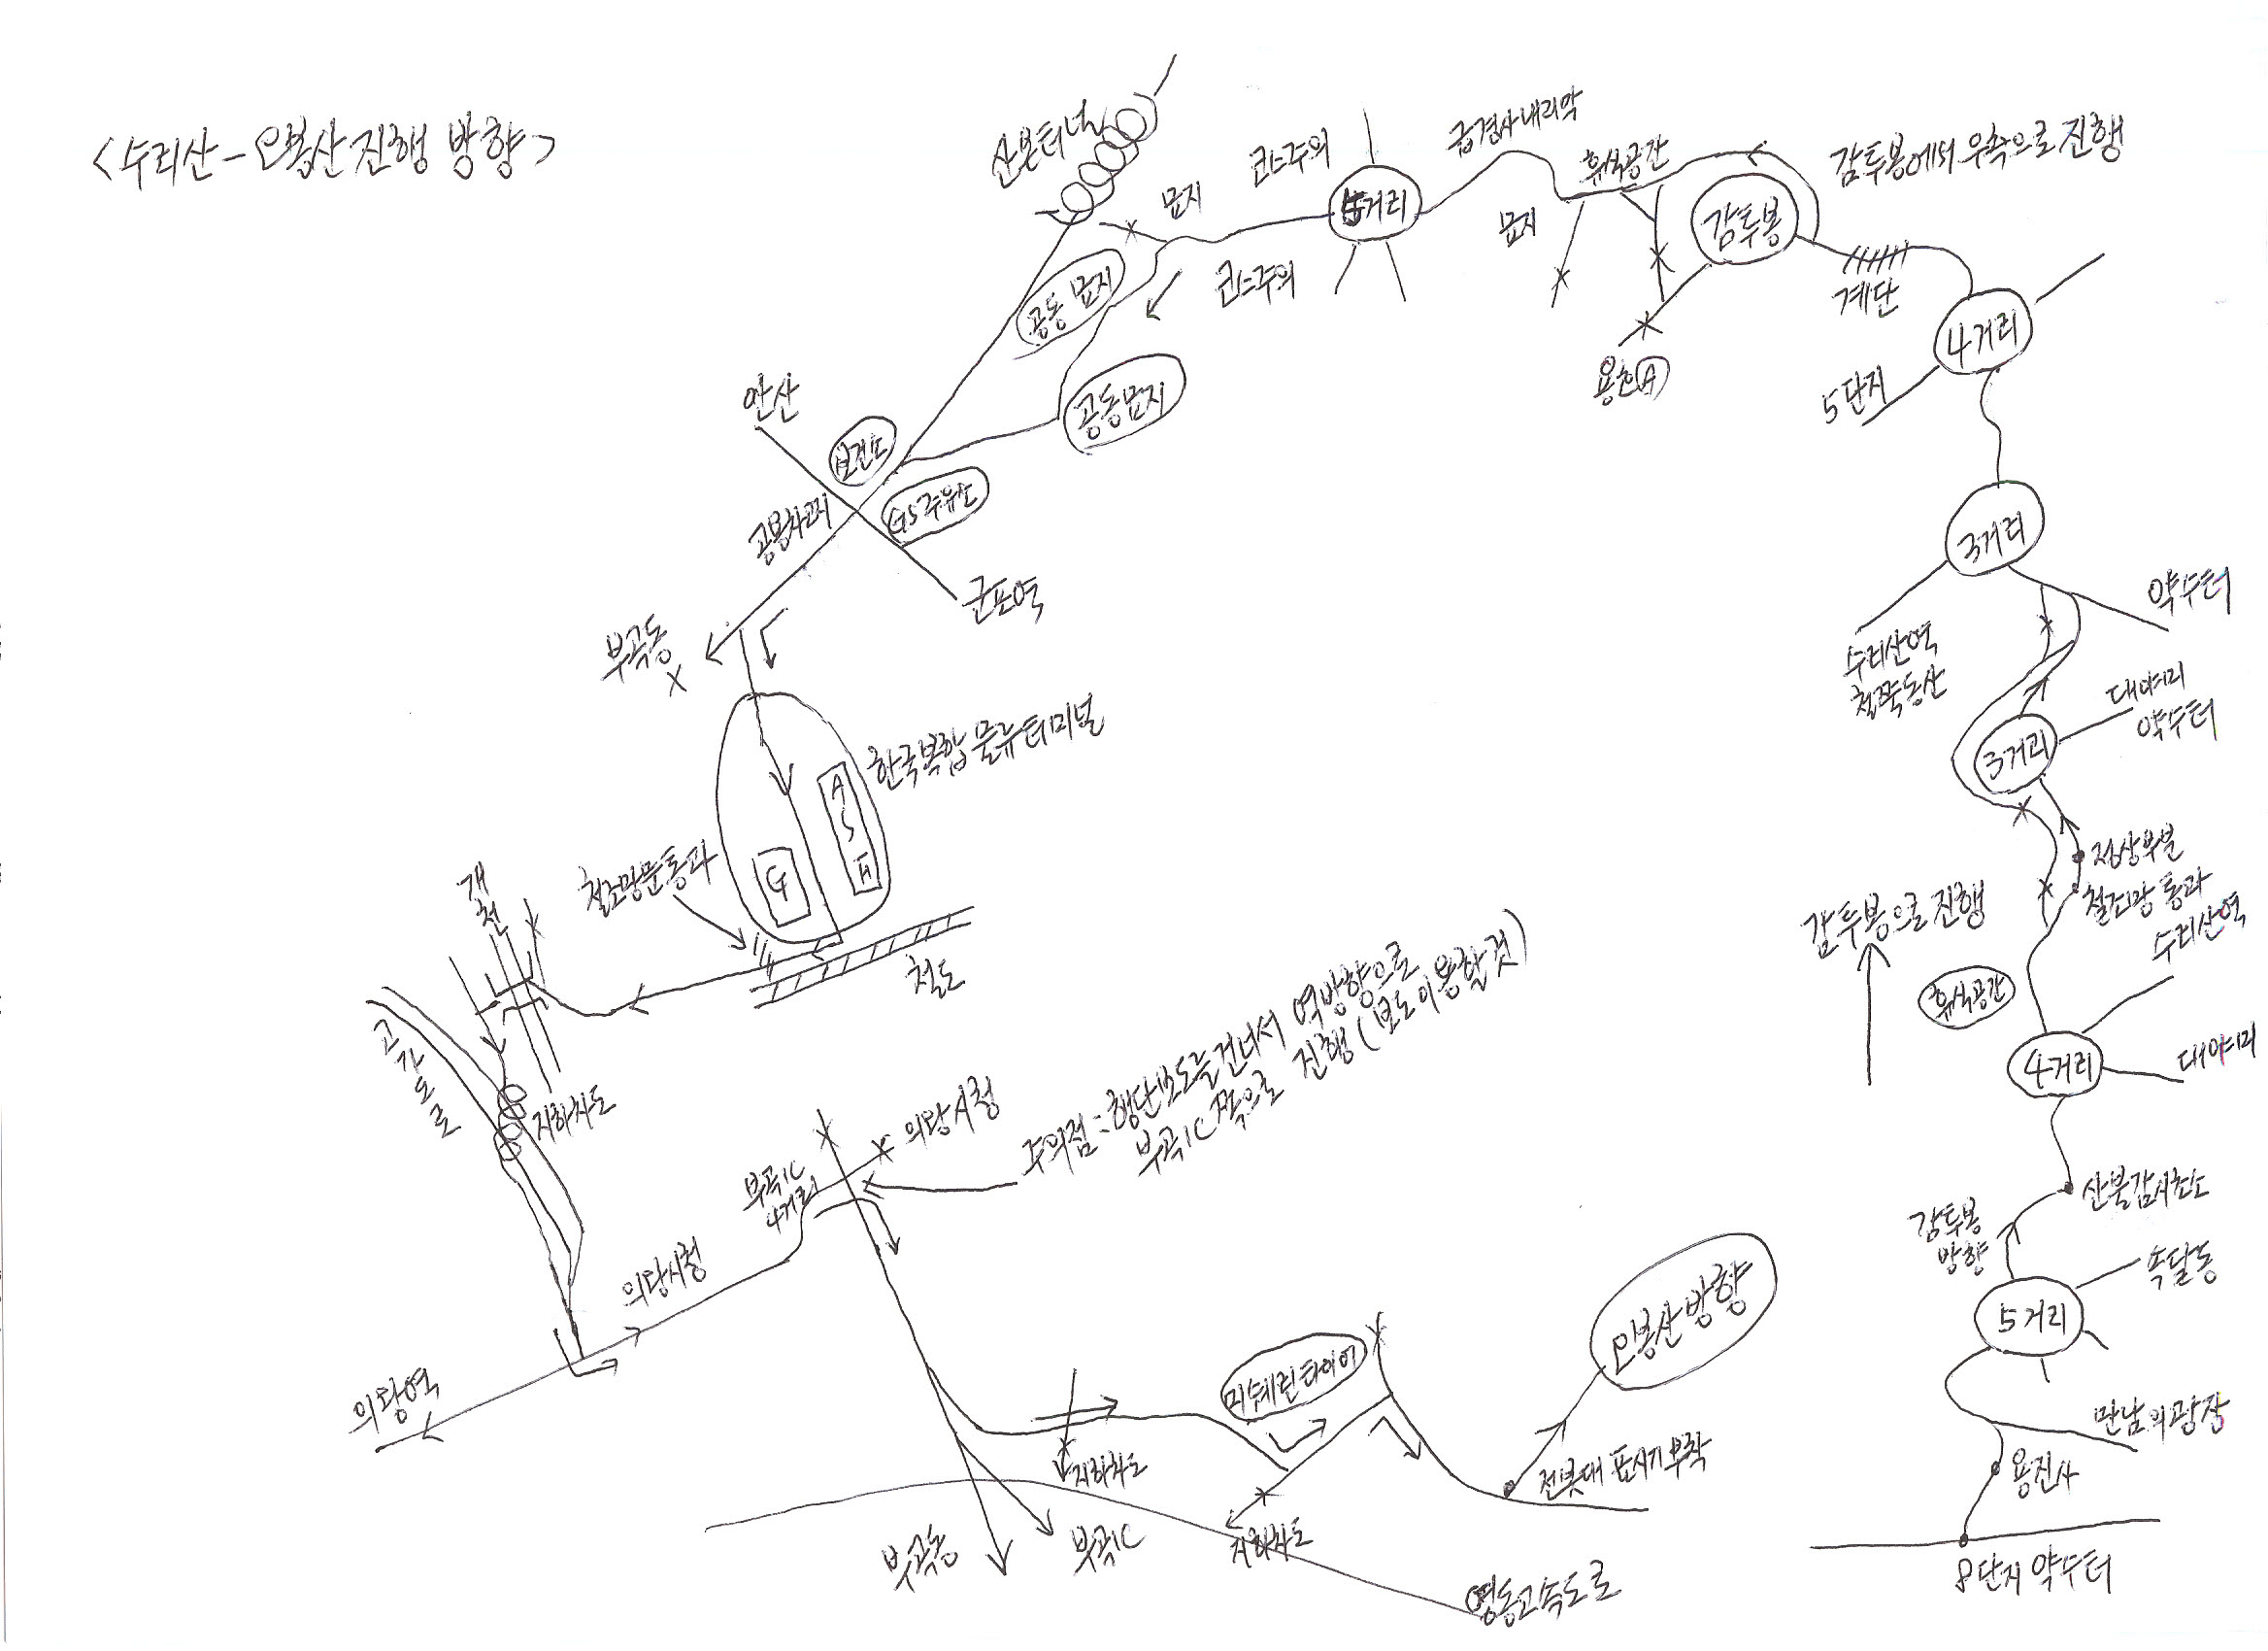 <수리산-오봉산 진행 방향>
산본터널
묘지
코스주의
5거리
급경사내리막
휴식공간
감투봉에서 우측으로 진행
감투봉
묘지
코스주의
계단
4거리
5단지
용호A
공동묘지
공동묘지
안산
보건소
GS주유소
공용차고지
군포역
부곡동
3거리
약수터
수리산역
철쭉동산
대야미
약수터
3거리
한국복합물류터미널
A
G
정상부분
철조망 통과
수리산역
감투봉으로 진행
휴식공간
4거리
대야미
철조망문통과
철도
개천
고가도로
지하차도
주의점:횡단보도를건너서 역방향으로
부곡IC쪽으로 진행(보도이용할것)
의왕시청
부곡IC
4거리
의왕시청
의왕역
산불감시초소
감투봉
방향
속달동
5거리
만남의광장
용진사
8단지 약수터
오봉산방향
미쉐린타이어
전봇대 표시기부착
지하차도
지하차도
부곡동
부곡IC
영동고속도로